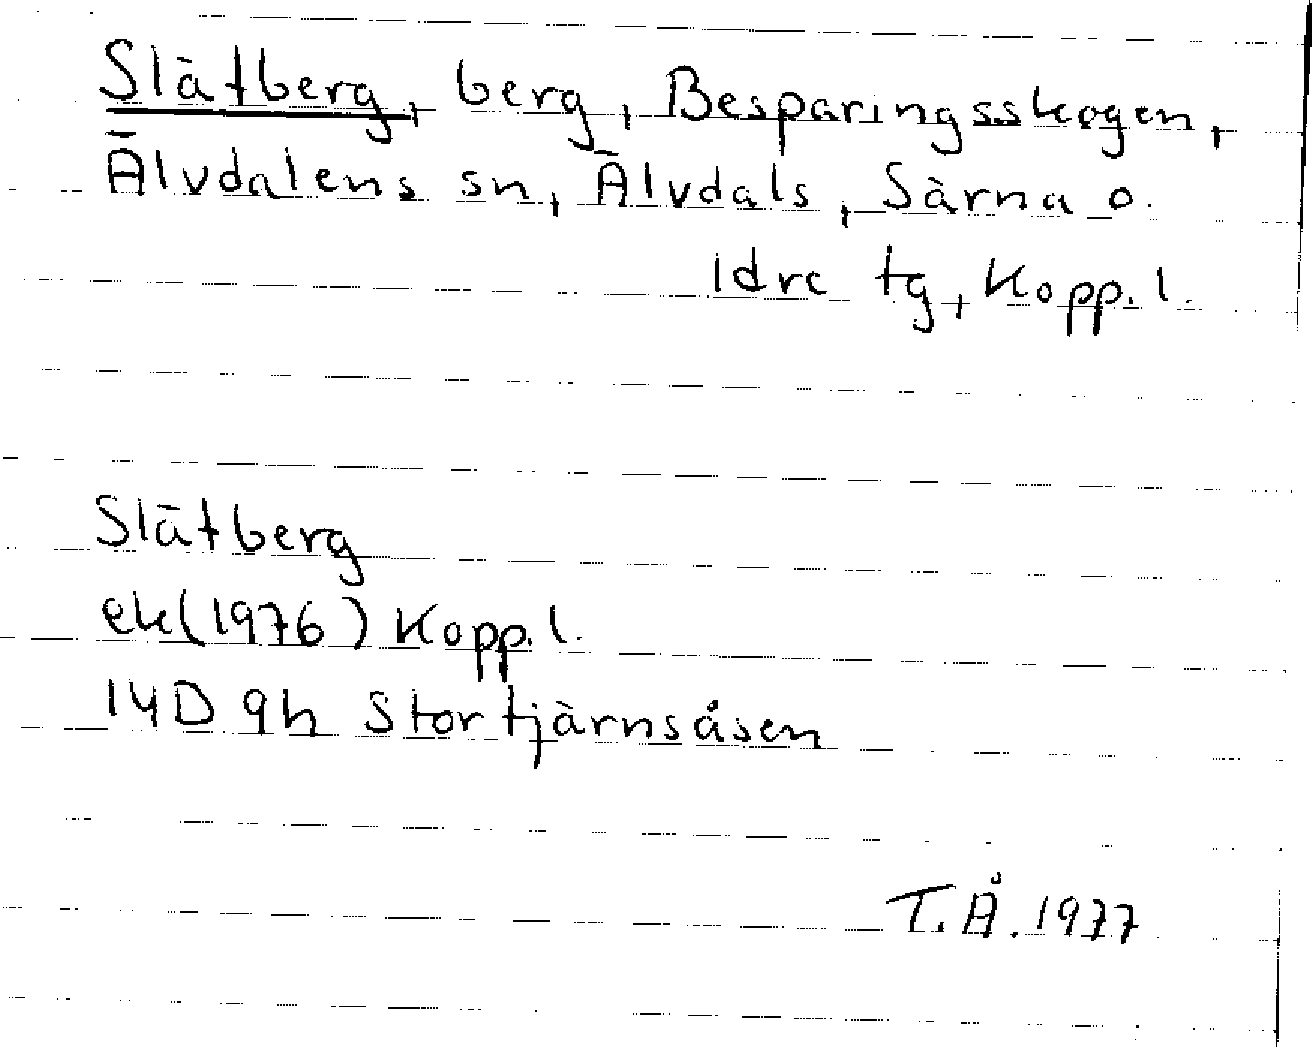 Slätberg, berg, Besparingsskogen,
Älvdalens sn, Älvdals, Särna o.
Idre tg, Kopp. l.
Slätberg
ek(1976) Kopp. l.
14D 9h Stortjärnsåsen
T. Å. 1977